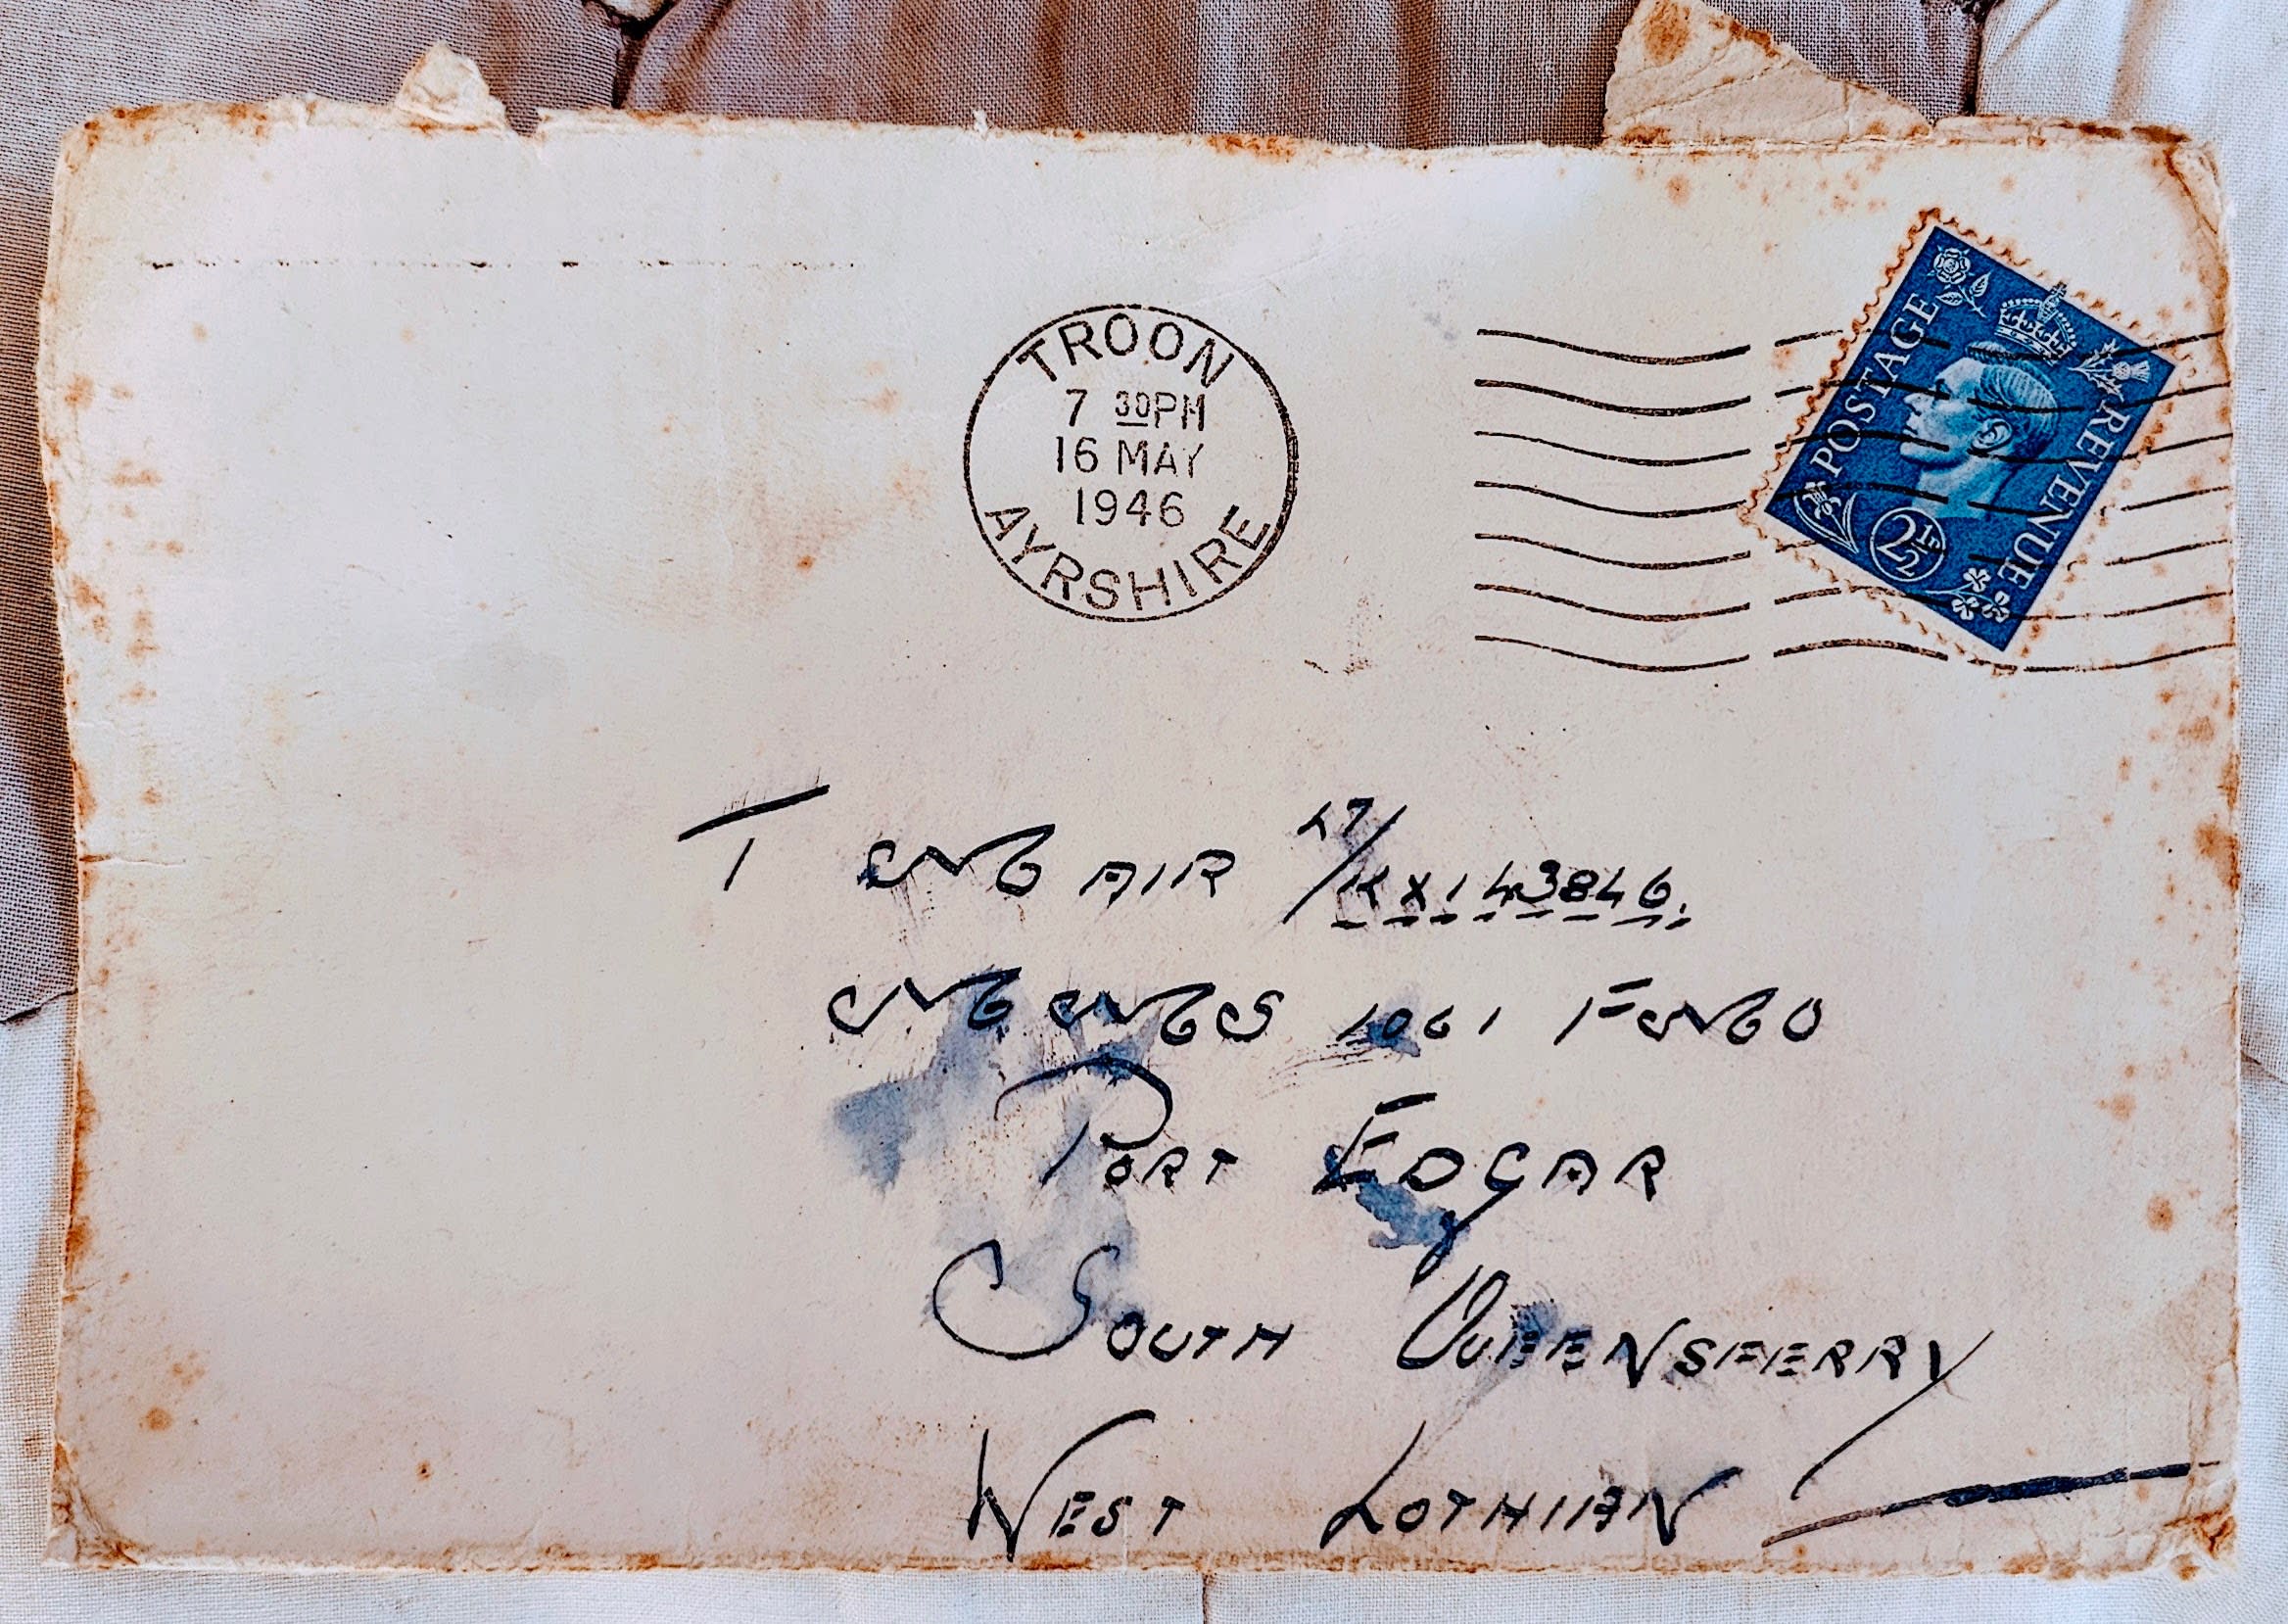 TROON
7 30PM
16 MAY
1946
AYRSHIRE
POSTAGE
REVENUE
2½D
T LT/KX143846.
1061
PORT EDGAR
SOUTH QUEENSFERRY
WEST LOTHIAN